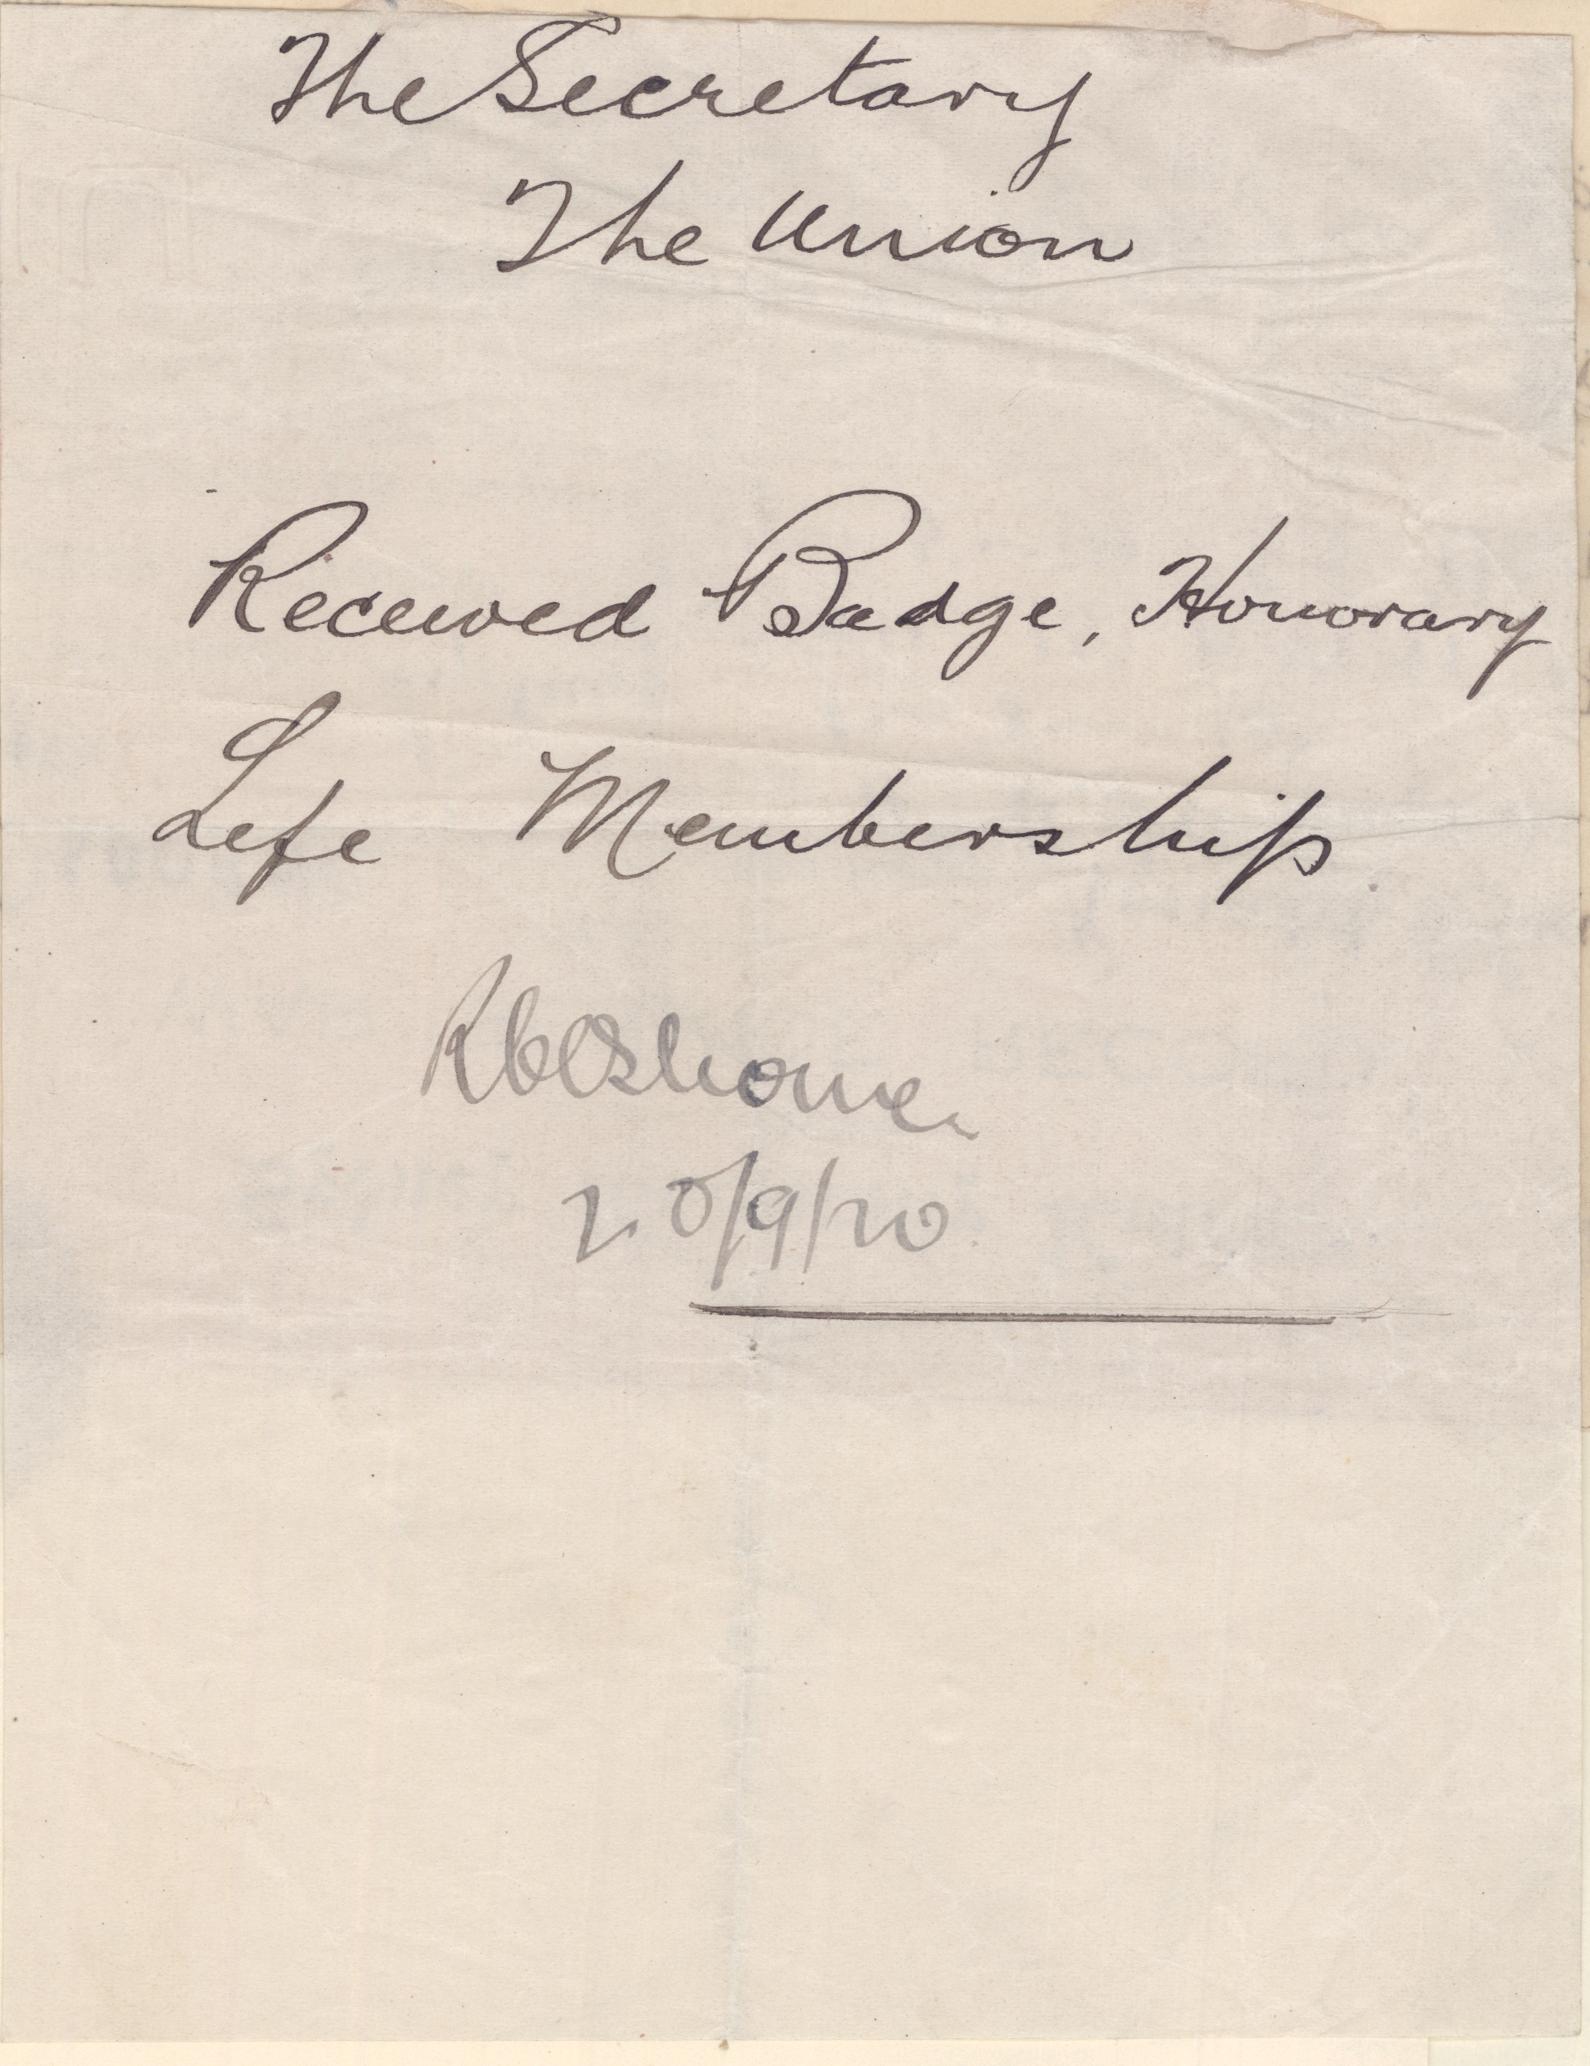 The Secretary
The Union
Received Badge, Honorary
Life Membership
20/9/20